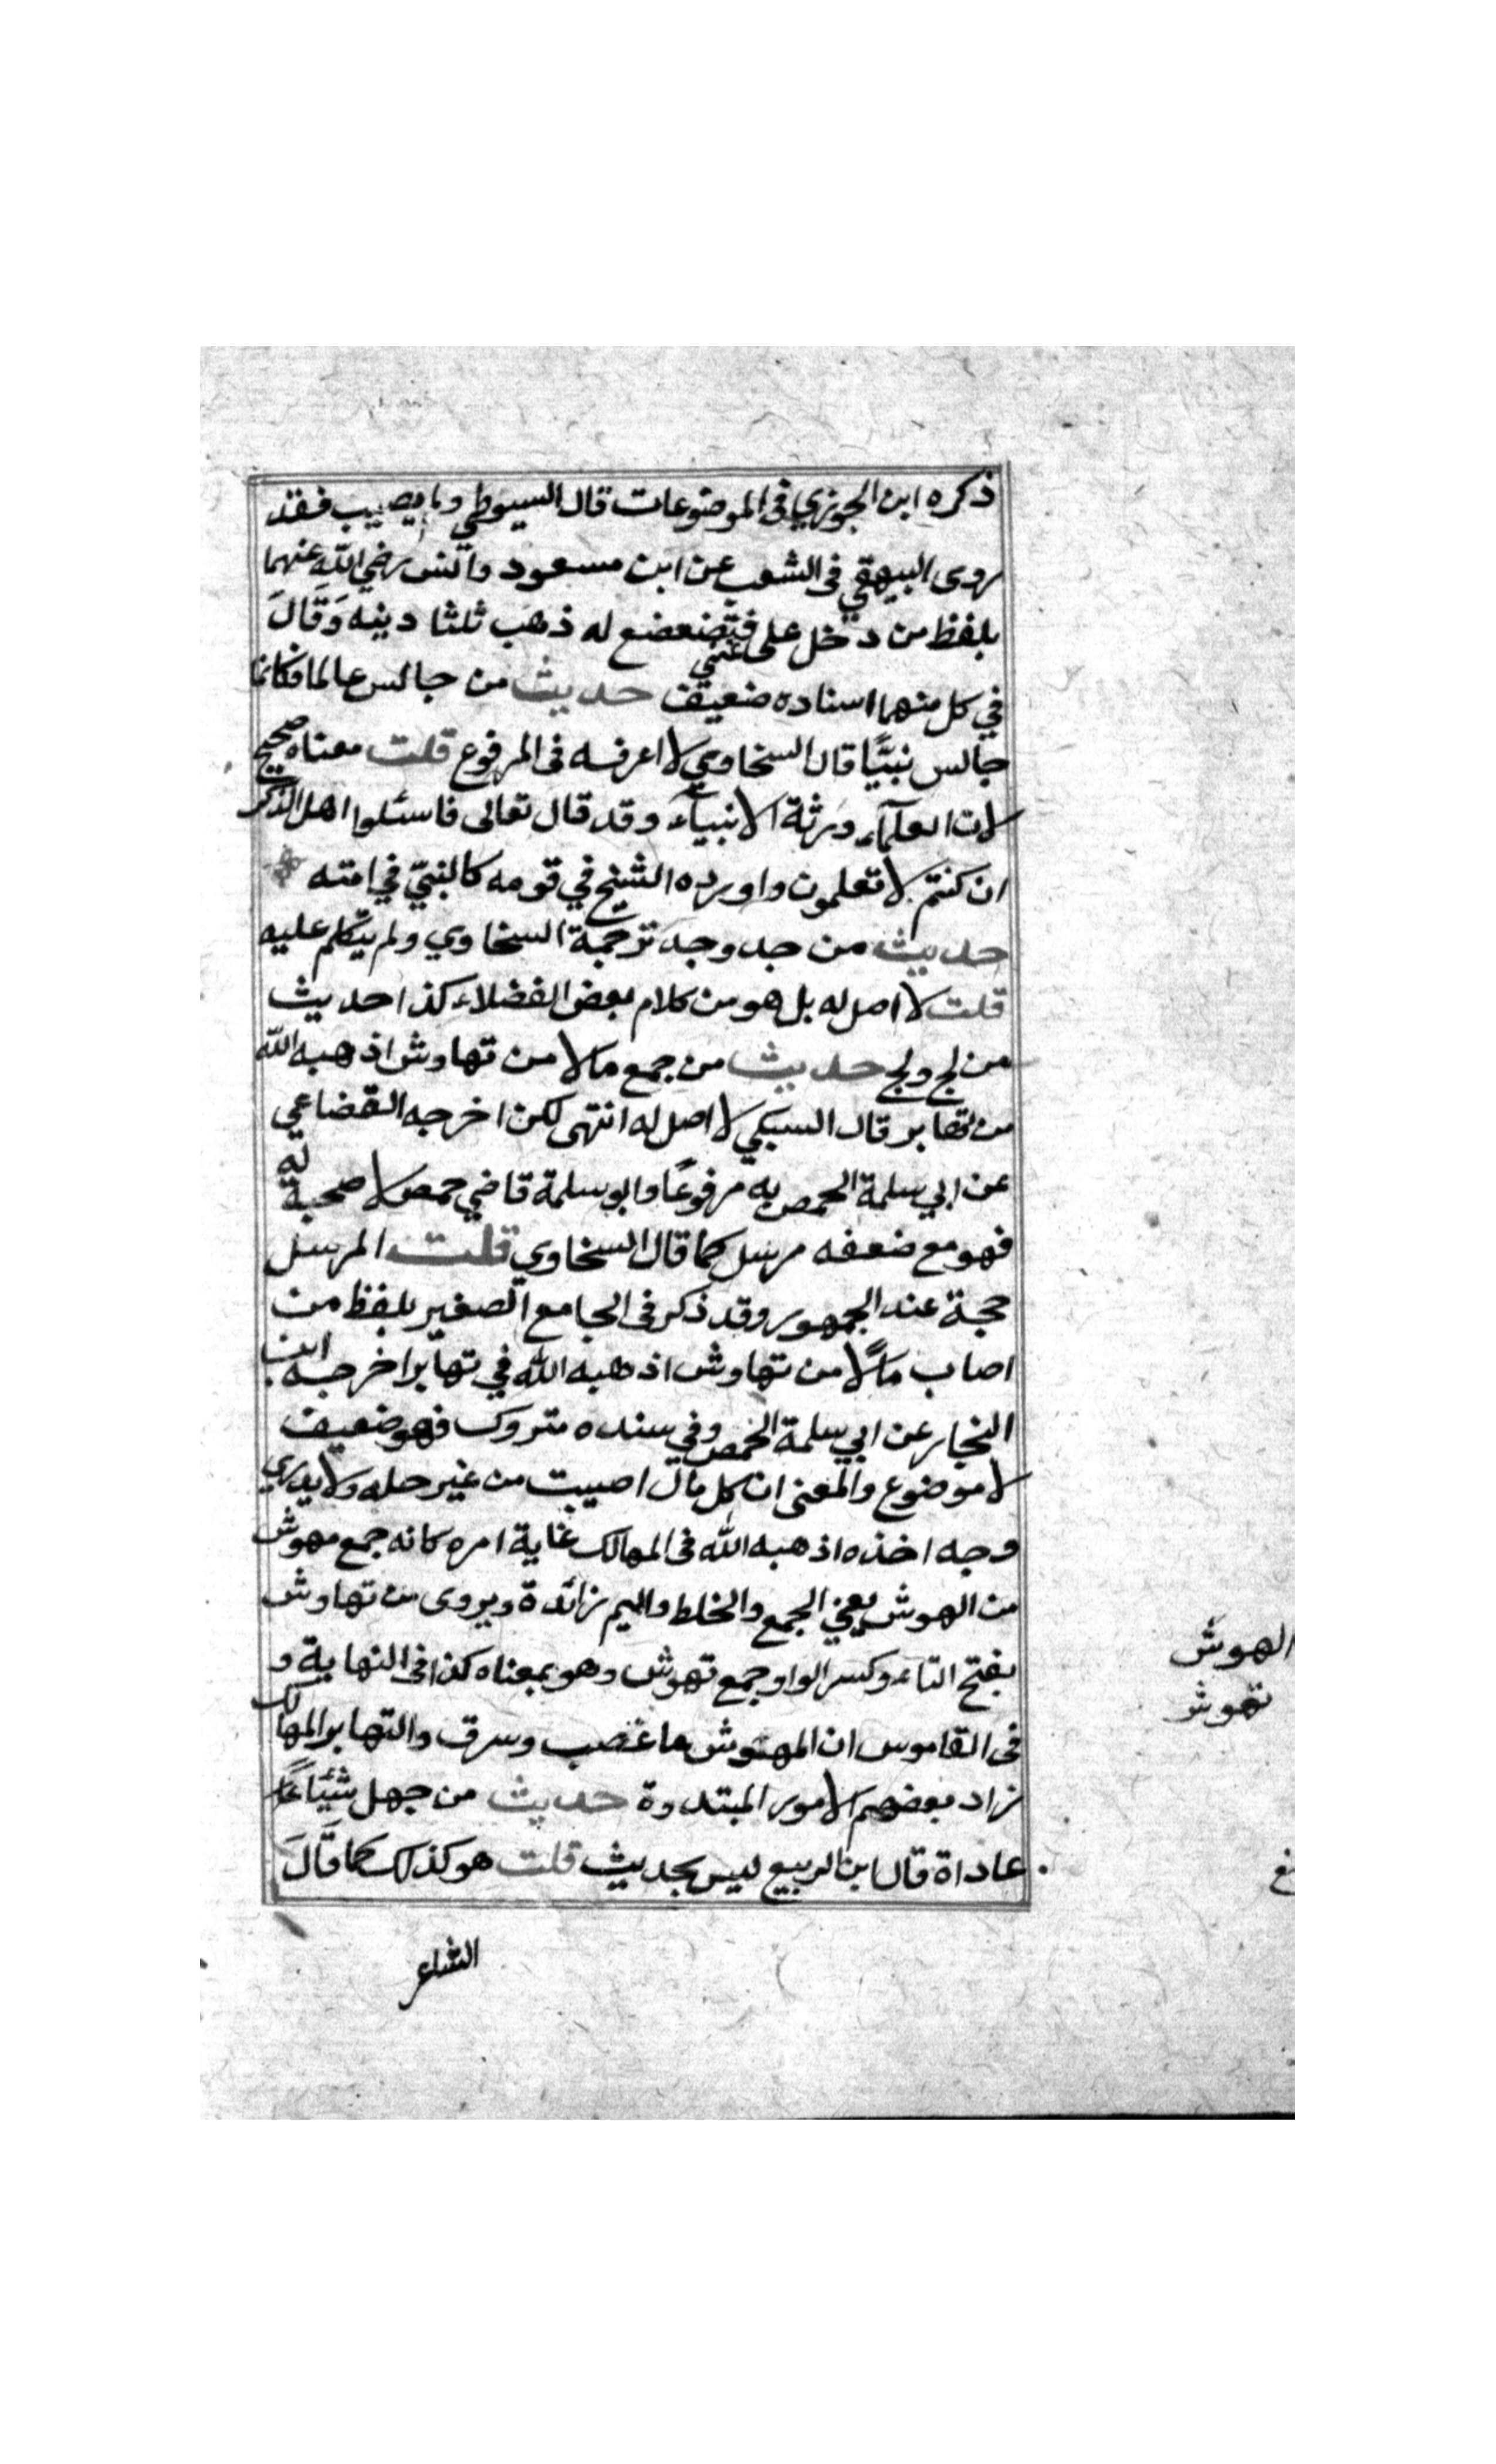 ذكره ابن الجوزي في الموضوعات قال السيوطي وما يصيب فقد
روى البيهقي في الشعب عن ابن مسعود وانس رضي الله عنهما
بلفظ من دخل على غني فتضعضع له ذهب ثلثا دينه وَقَالَ
في كل منهما اسناده ضعيف حديث من جالس عالما فكانما
جالس نبيًّا قال السخاوي لا اعرفه في المرفوع قلت معناه صحيح
لان العلمآء ورثة الانبيآء وقد قال تعالى فاسئلوا اهل الذكر
ان كنتم لا تعلمون واورده الشيخ في قومه كالنبيّ في امته
حديث من جد وجد ترجمة السخاوي ولم يتكلم عليه
قلت لا اصل له بل هو من كلام بعض الفضلاء كذا حديث
من لج ولج حديث من جمع مالا من تهاوش اذهبه الله
من تهابر قال السبكي لا اصل له انتهى لكن اخرجه القضاعي
عن ابي سلمة الحمص به مرفوعًا وابو سلمة قاضي حمص لا صحبة له
فهو مع ضعفه مرسل كما قال السخاوي قلت المرسل
حجة عند الجمهور وقد ذكر في الجامع الصغير بلفظ من
اصاب مالًا من تهاوش اذهبه الله في تهابر اخرجه ابن
النجار عن ابي سلمة الحمص وفي سنده متروك فهو ضعيف
لا موضوع والمعنى ان كل مال اصيبت من غير حله ولا يدري
وجه اخذه اذهبه الله في المهالك غاية امره كانه جمع مهوش
من الهوش يعني الجمع والخلط والميم زائدة ويروى من تهاوش
بفتح التاء وكسر الواو جمع تهوش وهو بمعناه كذا في النهاية و
في القاموس ان المهتوش ما غصب وسرق والتهابر المهالك
زاد بعضهم الامور المبتدوة حديث من جهل شيئًا
عاداة قال ابن الربيع ليس بحديث قلت هو كذلك كما قَالَ
الشاعر
الهوش
تهوش